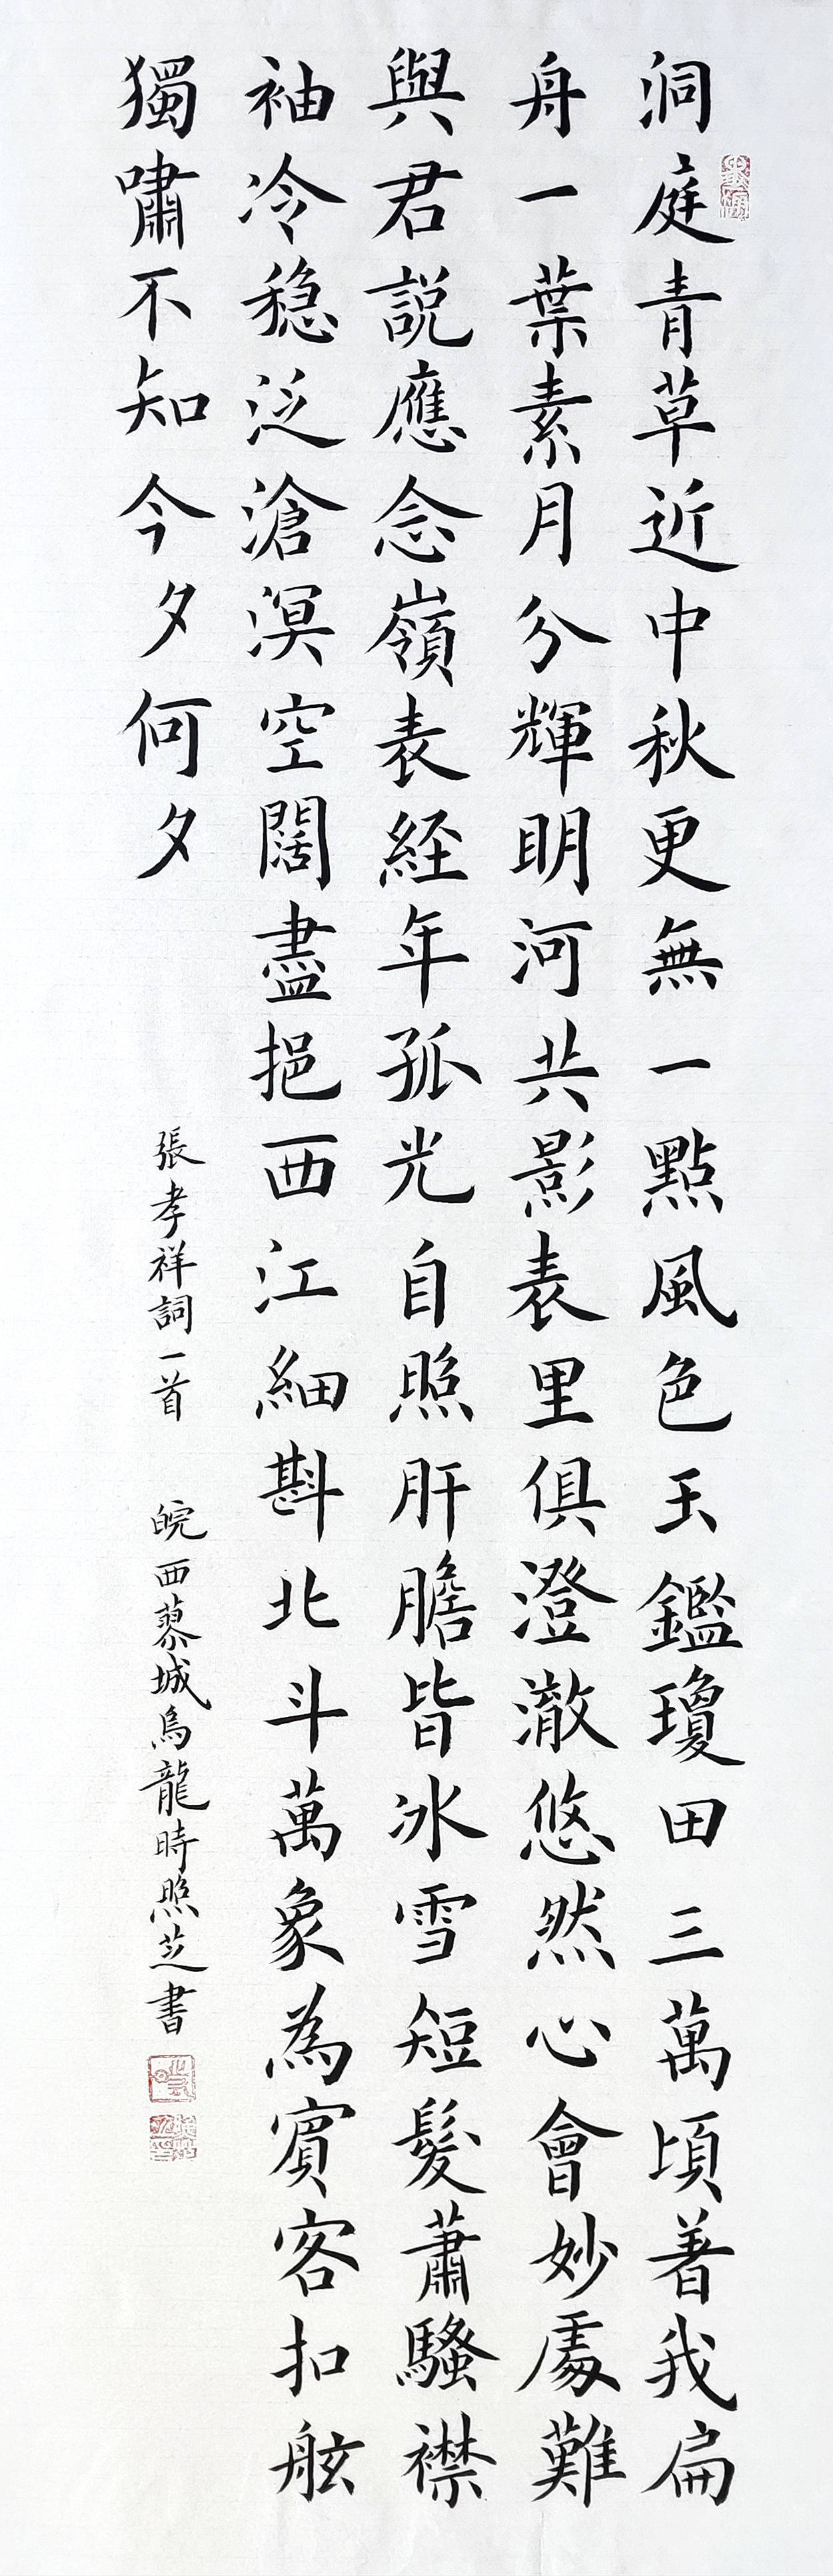 洞庭青草近中秋更無一點風色玉鑑瓊田三萬頃著我扁
舟一葉素月分輝明河共影表里俱澄澈悠然心會妙處難
與君説應念嶺表経年孤光自照肝膽皆冰雪短髮蕭騷襟
袖冷穏泛滄溟空闊盡挹西江細斟北斗萬象為賓客扣舷
獨嘯不知今夕何夕
張孝祥詞一首 皖西蓼城烏龍時照芝書